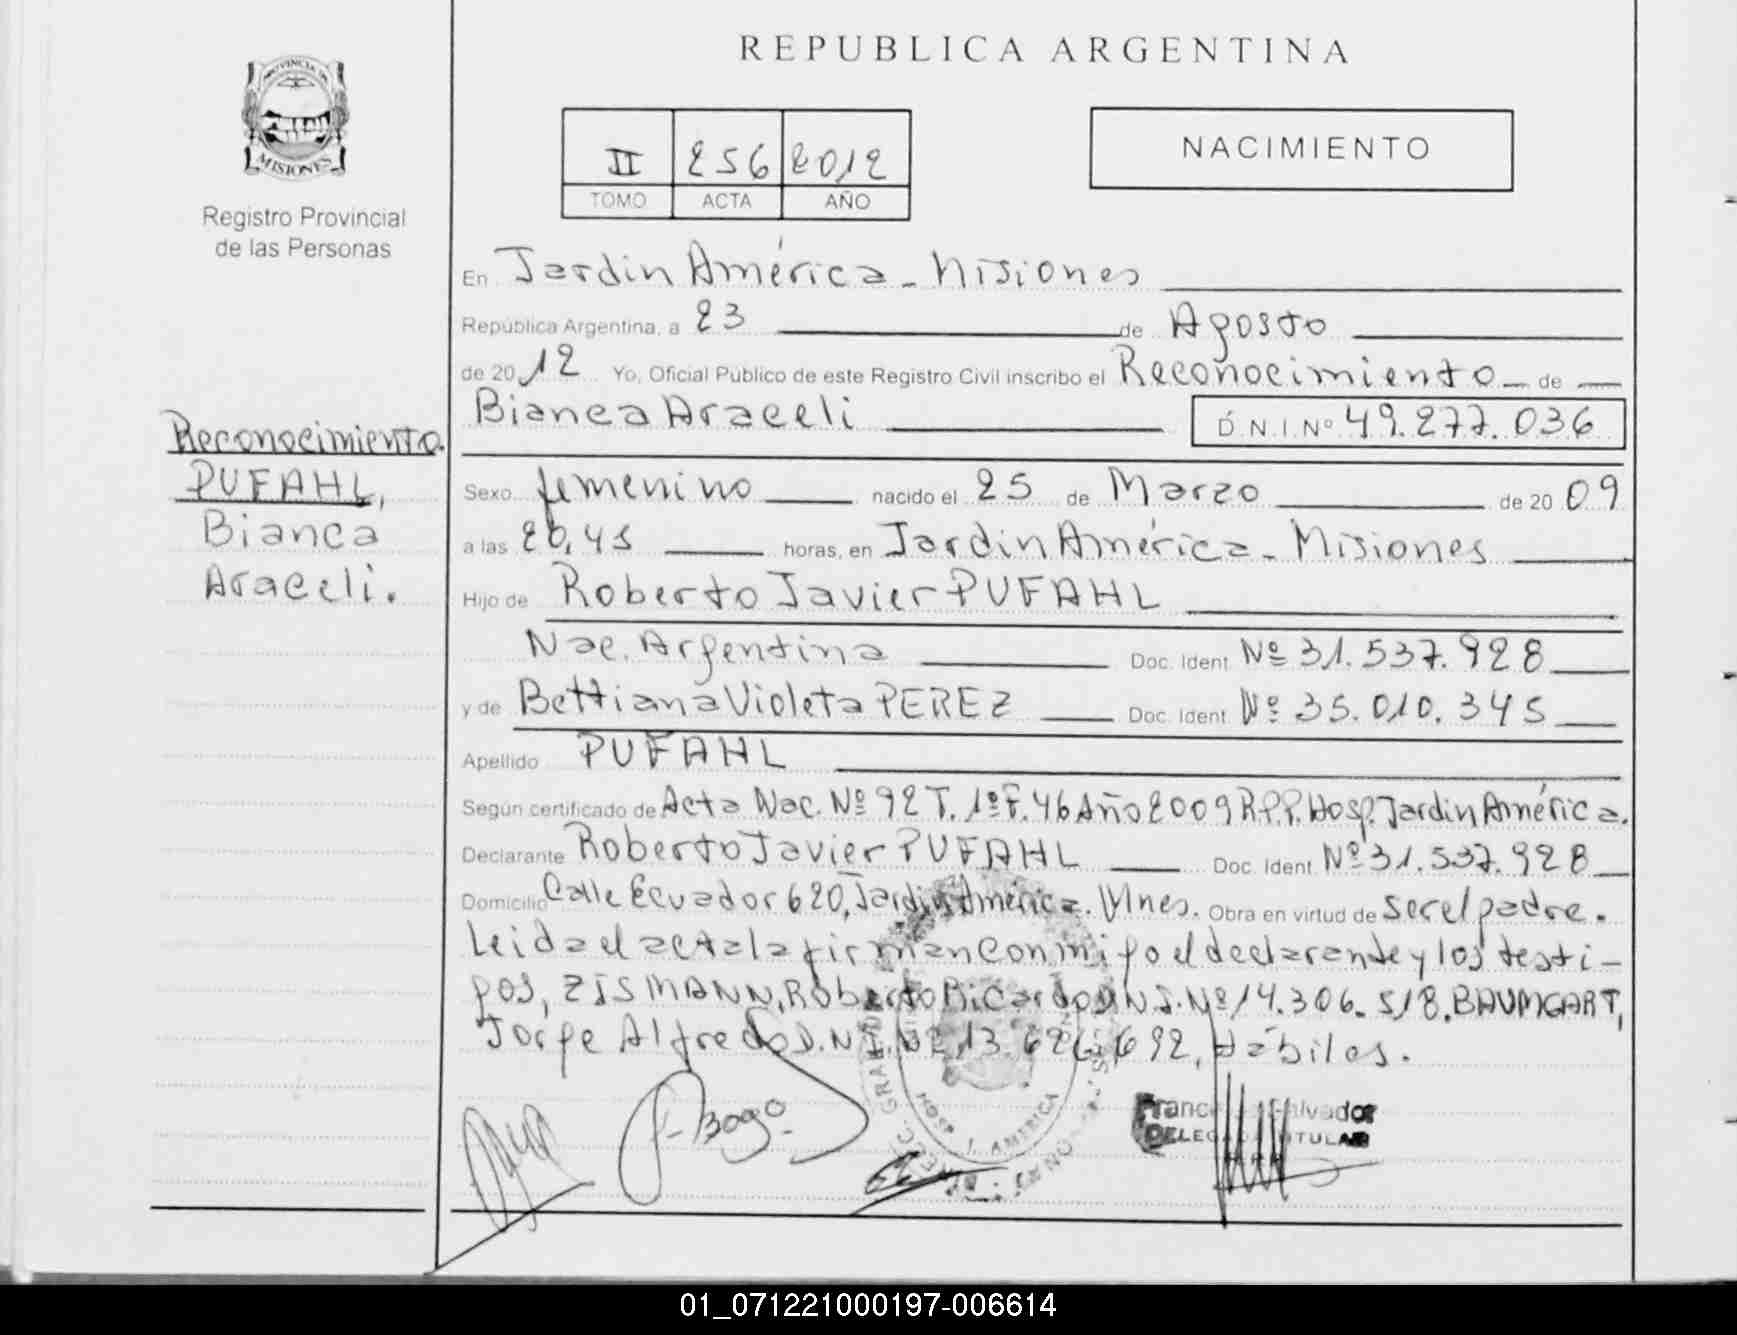 REPUBLICA ARGENTINA
PROVINCIA DE
MISIONES
Registro Provincial
de las Personas
II 256 2012
TOMO ACTA AÑO
NACIMIENTO
En Jardin América - Misiones
República Argentina, a 23 de Agosto
de 2012 Yo, Oficial Público de este Registro Civil inscribo el Reconocimiento de
Bianca Araceli D.N.I. Nº 49.277.036
Reconocimiento
PUFAHL,
Bianca
Araceli.
Sexo femenino nacido el 25 de Marzo de 2009
a las 20,45 horas, en Jardin América - Misiones
Hijo de Roberto Javier PUFAHL
Nac. Argentina Doc. Ident. Nº 31.537.928
y de Bettiana Violeta PEREZ Doc. Ident. Nº 35.010.345
Apellido PUFAHL
Según certificado de Acta Nac. Nº 92 T. 1º F. 46 Año 2009 R.P.P. Hosp. Jardin América.
Declarante Roberto Javier PUFAHL Doc. Ident. Nº 31.537.928
Domicilio Calle Ecuador 620, Jardin América. Mnes. Obra en virtud de ser el padre.
Leida el acta la firman conmigo el declarante y los testi-
gos, ZISMANN, Roberto Ricardo D.N.I. Nº 14.306.518, BAUMGART,
Jorge Alfredo D.N.I. Nº 13.626.692, Hábiles.
HOSP. J. AMERICA
Salvador
DELEGADO TITULAR
01_071221000197-006614